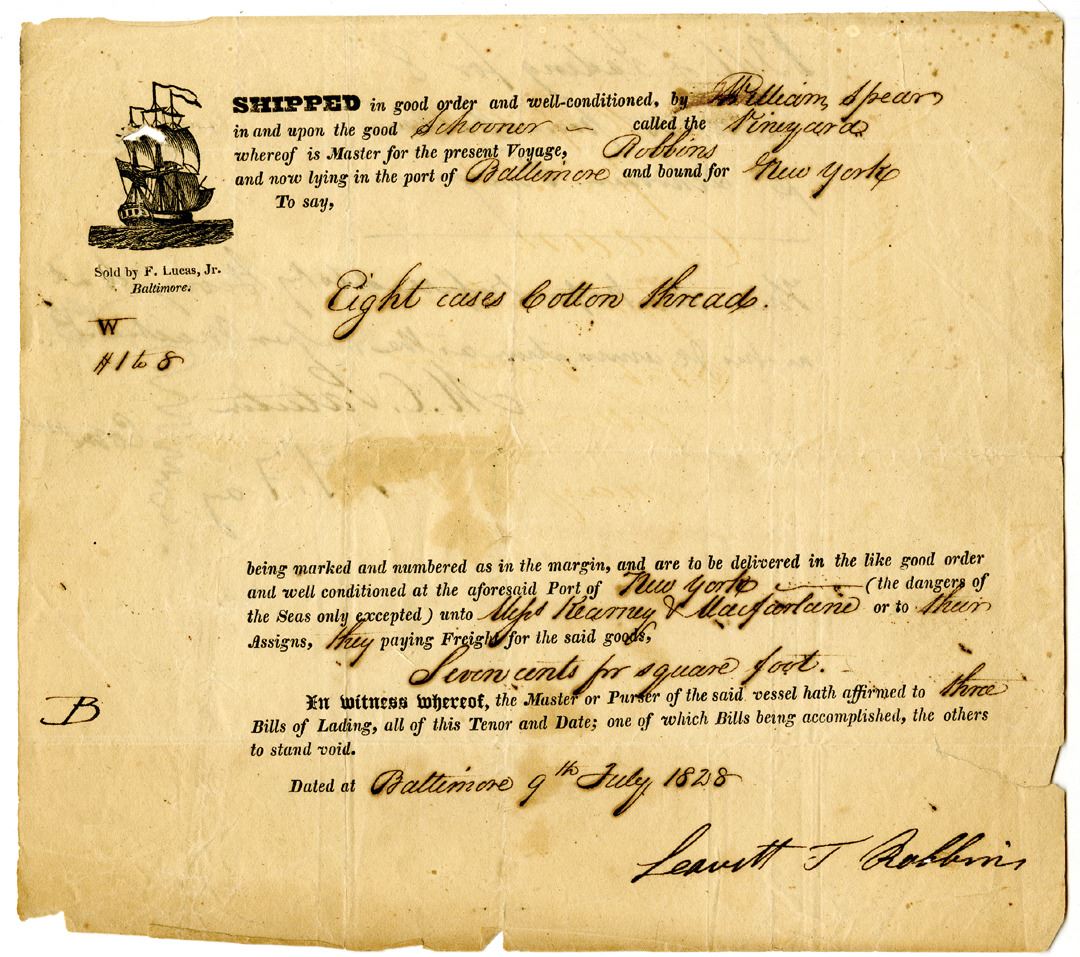 SHIPPED in good order and well-conditioned, by William Spear
in and upon the good Schooner called the Vineyard
whereof is Master for the present Voyage, Robbins
and now lying in the port of Baltimore and bound for New York
To say,
Sold by F. Lucas, Jr.
Baltimore.
Eight cases Cotton thread.
W
# 1 to 8
being marked and numbered as in the margin, and are to be delivered in the like good order
and well conditioned at the aforesaid Port of New York (the dangers of
the Seas only excepted) unto Messs Kearney & Macfarlane or to their
Assigns, they paying Freight for the said goods,
Seven cents pr square foot.
In witness whereof, the Master or Purser of the said vessel hath affirmed to three
B
Bills of Lading, all of this Tenor and Date; one of which Bills being accomplished, the others
to stand void.
Dated at Baltimore 9th July 1828
Leavitt T Robbins